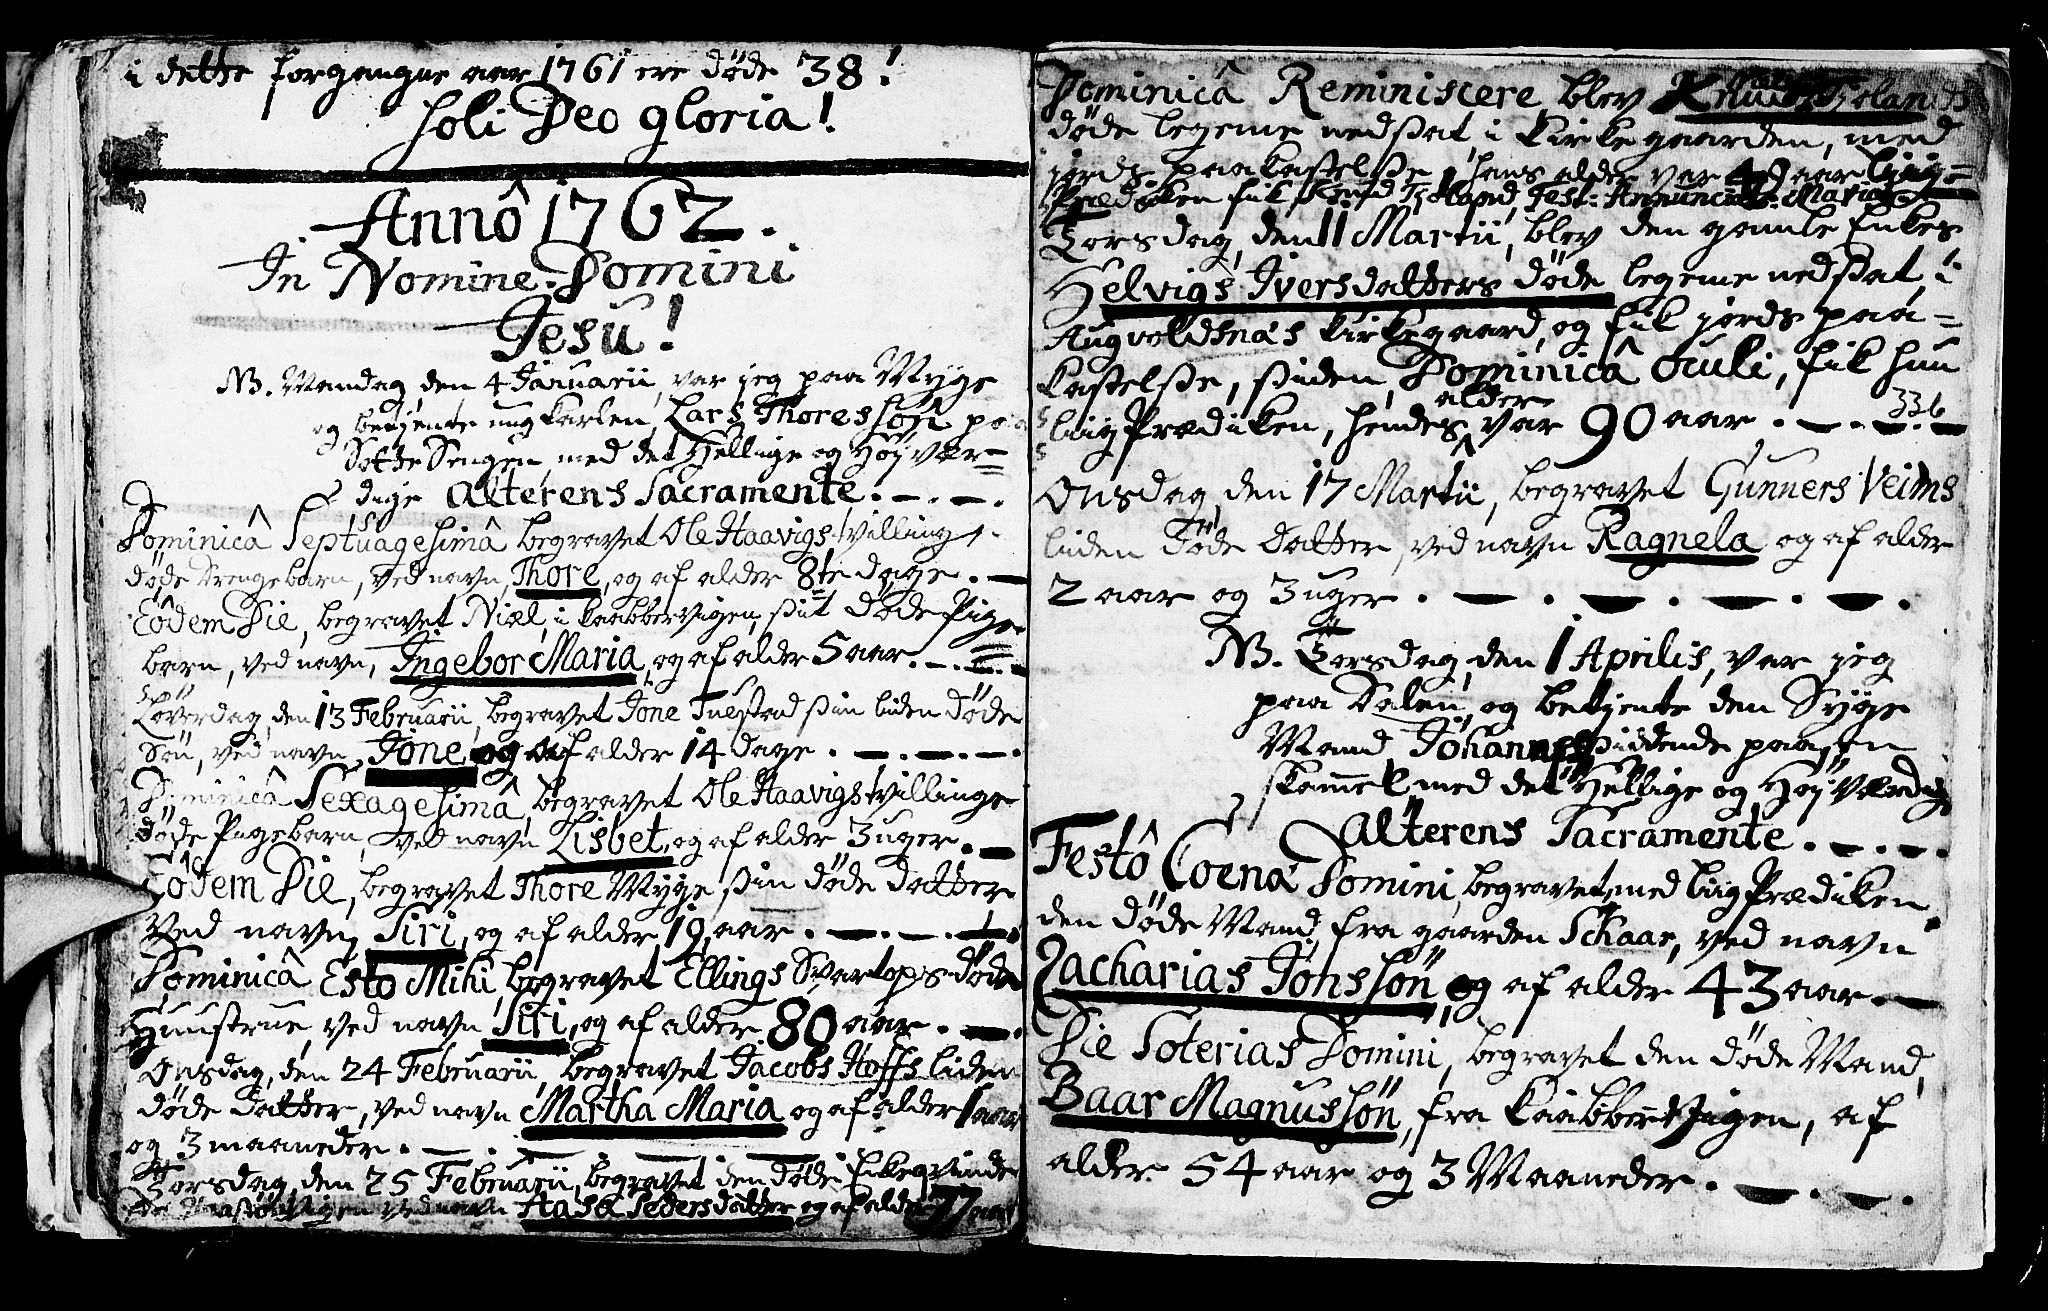 i dette forgangne aar 1761 ere døde 38!
Soli Deo gloria!
Annô 1762.
In Nomine Domini
Jesu!
NB. Mandag, den 4 Januarii, var jeg paa Myge
og betjente ungkarlen, Lars Thoressøn paa
Sotte Sengen, med det Hellige og Høy vær=
dige Alterens Sacramente.
Dominicâ Septuagesimâ begravet Ole Haavigs tvilling,
døde Drengebarn, ved navn, Thore, og af alder 8te dage.
Eôdem Die, begravet Niel, i kaabbervigen, sit døde Pige
barn, ved navn, Ingebor Maria, og af alder 5 aar.
Løverdag, den 13 Februarii, begravet Jone Tuestad sin liden døde
Søn, ved navn, Jone, og af alder 14 dage.
Dominicâ Sexagesimâ, begravet Ole Haavigs tvillinge
døde Pigebarn, ved navn Lisbet, og af alder 3 uger.
Eôdem Die, begravet Thore Myge sin døde datter
Ved navn, Siri, og af alder 19, aar.
Dominicâ Esto Mihi, begravet Ellings Svartops døde
Huustrue, ved navn Siri, og af alder 80 aar.
Onsdag, den 24 Februarii, begravet Jacobs Hoffs liden
døde datter, ved navn Martha Maria og af alder 1 aar
og 3 maaneder.
Torsdag, den 25 Februarii, begravet den døde Enkeqvinde
ved navn Hasa Pedersdatter og af alder 77 aar
Dominicâ Reminiscere, blev Knud
døde legeme nedsat, i Kirkegaarden, med
jords paakastelse, hans alder var 49 aar Liig=
Prædiken fik Fest: Annunciat: Mariæ
Torsdag, den 11 Martii, blev den gamle Enkes
Helvigs Iversdatters døde legeme nedsat, i
Augvoldsnæs kirkegaard, og fik jords paa=
kastelse, siden Dominicâ Oculi, fik hun
alder
liig Prædiken, hendes var 90 aar. 336
Onsdag, den 17 Martii, begravet Gunners Veims
liden døde datter, ved navn Ragnela og af alder
2 aar og 3 uger.
NB. Torsdag, den 1 Aprilis, var jeg
paa Dalen, og betjente den Syge
Mand Johannes siddende paa, en
skammel med det Hellige og Høy Værdige
Alterens Sacramente.
Festô Coenâ Domini, begravet, med liig Prædiken,
den døde Mand, fra gaarden Skaar, ved navn
Zacharias Jonssøn og af alder 43 aar.
Die Soterias Domini, begravet den døde Mand,
Baar Magnussøn, fra kaabbervigen, af
alder 54 aar og 3 Maaneder.